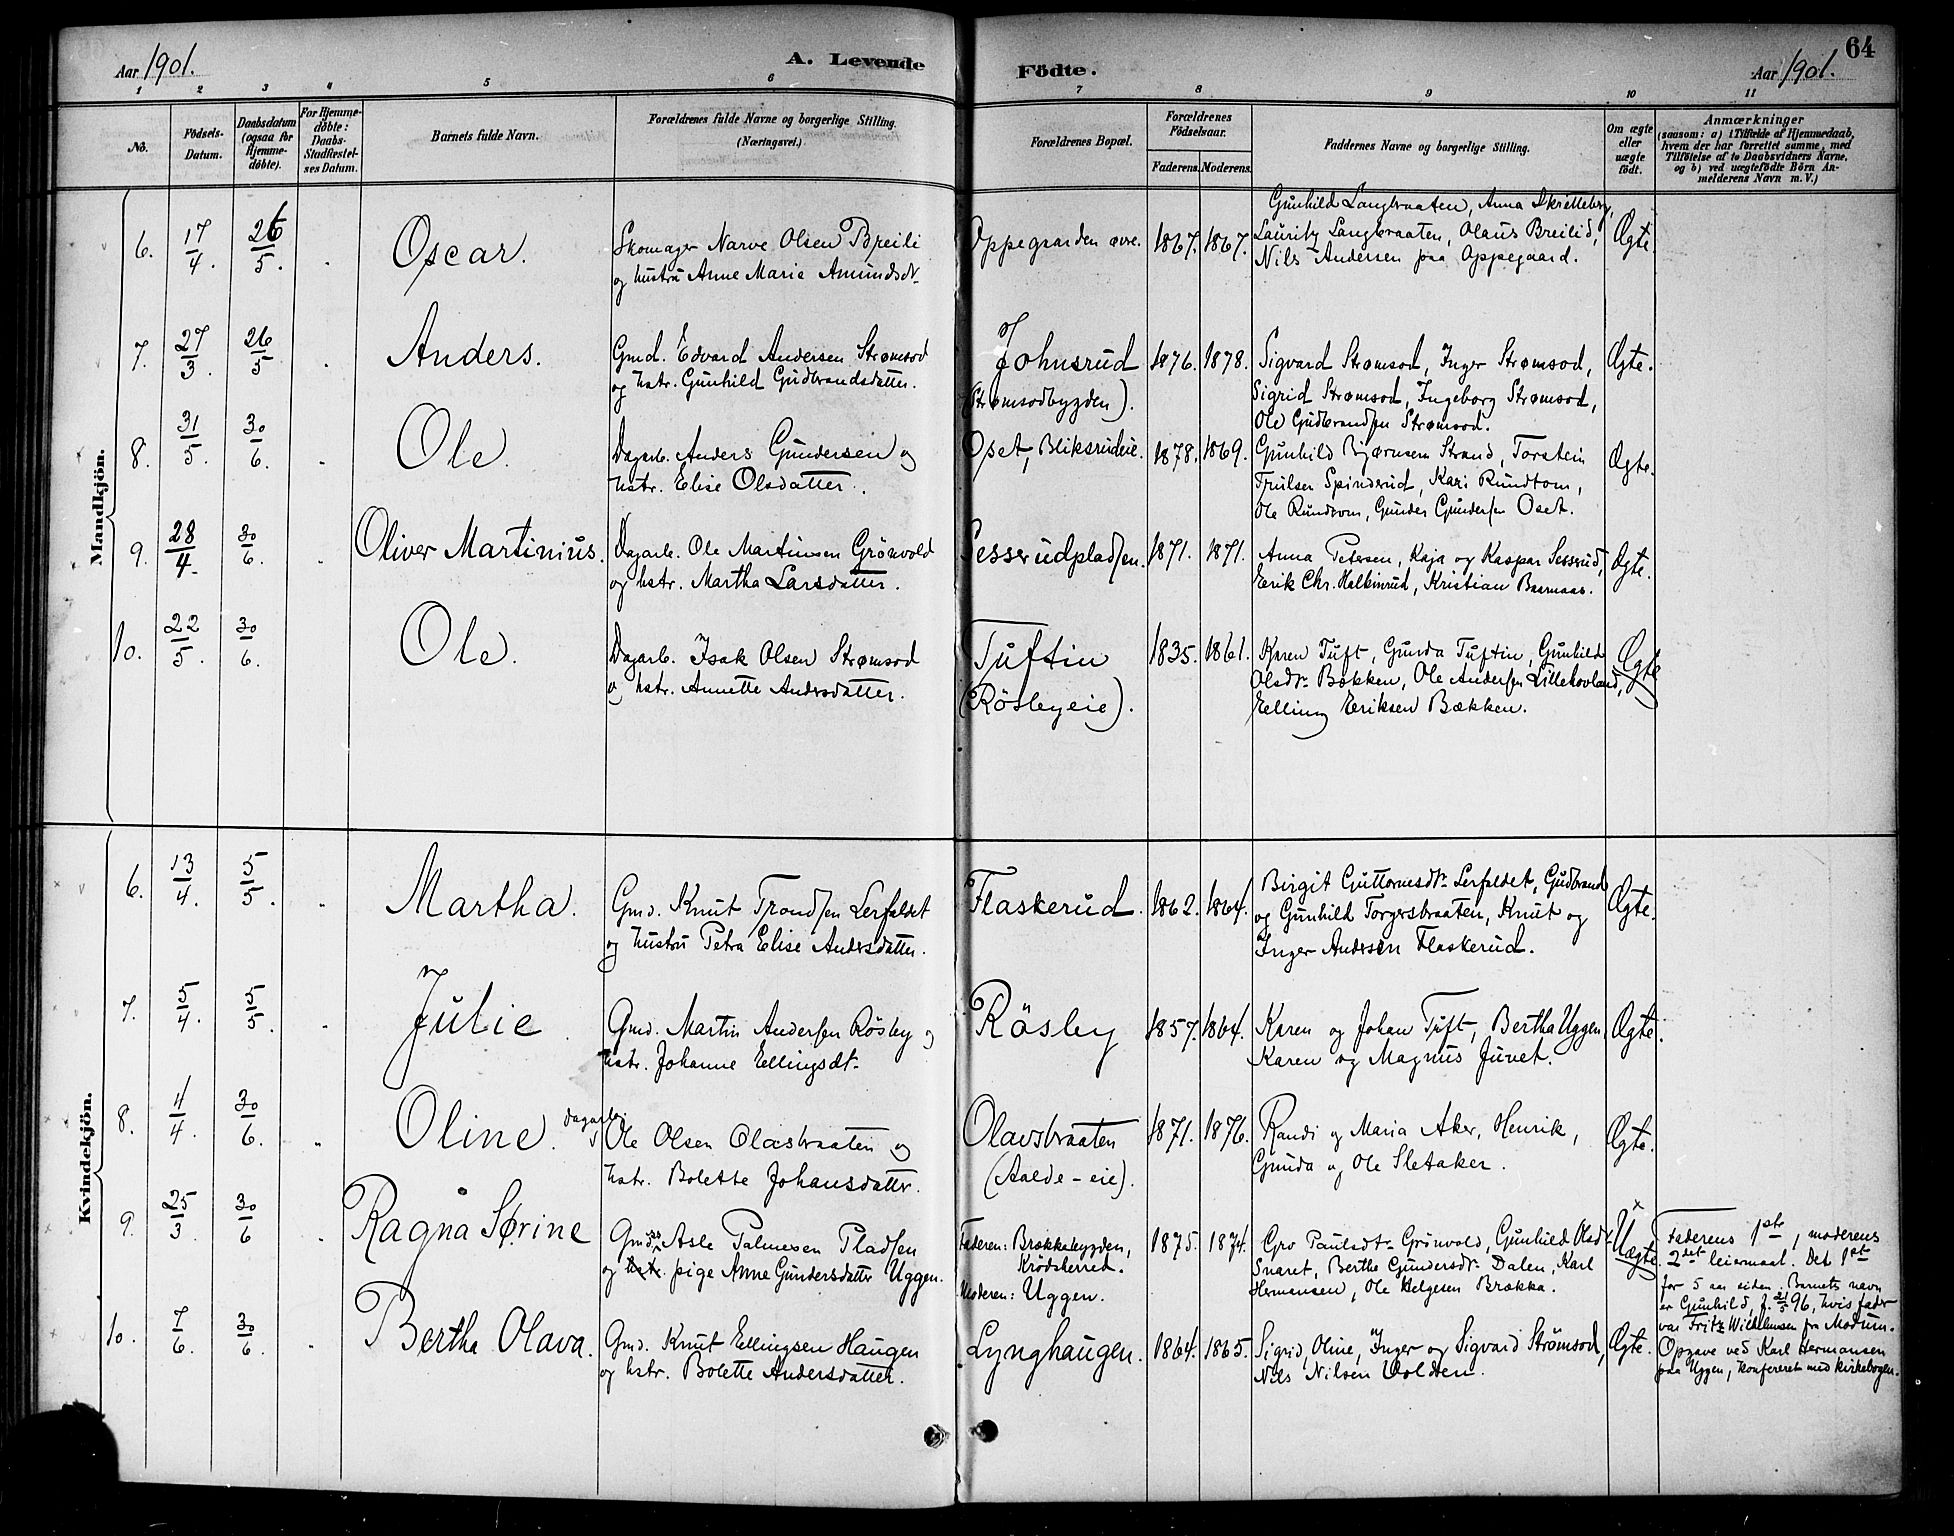 Aar 1901.
A. Levende
Födte.
Aar 1901.
64
1 2 3 4 5 6 7 8 9 10 11
No.
Födsels-
Datum.
Daabsdatum
(ogsaa for
Hjemme-
döbte).
For Hjemme-
døbte:
Daabs-
Stadfæstel-
ses Datum.
Barnets fulde Navn.
Forældrenes fulde Navne og borgerlige Stilling.
(Næringsvei.)
Forældrenes Bopæl.
Forældrenes
Födselsaar.
Faderens. Moderens.
Faddernes Navne og borgerlige Stilling.
Om ægte
eller
uægte
födt.
Anmærkninger
(saasom: a) i Tilfælde af Hjemmedaab,
hvem der har forrettet samme, med
Tilföielse af to Daabsvidners Navne,
og b) ved uægtefödte Börn An-
melderens Navn m. V.)
Mandkjön.
6. 17/4. 26/5. Oscar.
Skomager Narve Olsen Breili
og hustru Anne Marie Amundsdr
Oppegaarden øvre. 1867. 1867.
Gunhild Langbraaten, Anna Skretteberg,
Lauritz Langbraaten, Olaus Breilid,
Nils Andersen paa Oppegaard.
Ægte.
7. 27/3. 26/5 Anders.
Gmd. Edvard Andersen Strømsod
og hstr. Gunhild Gudbrandsdatter.
Johnsrud
(Strømsodbygden).
1876. 1878.
Sigvard Strømsod, Inger Strømsod,
Sigrid Strømsod, Ingeborg Strømsod,
Ole Gudbrandsen Strømsod.
Ægte.
8. 31/5. 30/6. Ole.
Dagarb. Anders Gundersen og
hstr. Elise Olsdatter.
Oset, Bliksrudeie. 1878. 1869.
Gunhild Bjørnsen Strand, Torstein
Trulsen Spinderud, Kari Rundtom,
Ole Rundtom, Gunder Gundersen Oset.
Ægte.
9. 28/4. 30/6. Oliver Martinius.
Dagarb. Ole Martinsen Grönvold
og hstr. Martha Larsdatter.
Sesserudpladsen. 1871. 1871.
Anna Petersen, Kaja og Kaspar Sesserud,
Erik Chr. Halbinrud, Kristian
Ægte.
10. 22/5. 30/6. Ole.
Dagarb. Isak Olsen Strømsod
og hstr. Annette Andersdatter.
Tuftin
(Rösbyeie).
1835. 1861.
Karen Tuft, Gunda Tuftin, Gunhild
Olsdr. Bækken, Ole Andersen Lillehovland,
Elling Eriksen Bækken.
Ægte
Kvindekjön.
6. 13/4. 5/5. Martha.
Gmd. Knut Trondsen Lerfaldet
og hustru Petra Elise Andersdatter.
Flaskerud. 1862. 1864.
Birgit Guttormsdr. Lerfaldet, Gudbrand
og Gunhild Torgersbraaten, Knut og
Inger Andersen Flaskerud.
Ægte.
7. 5/4. 5/5. Julie
Gmd. Martin Andersen Rösby og
hstr. Johanne Ellingsdt.
Rösby 1857. 1864.
Karen og Johan Tuft, Bertha Uggen,
Karen og Magnus Juvet.
Ægte.
8. 4/4. 30/6. Oline.
dagarb.
Ole Olsen Olasbraaten og
hstr. Bolette Johansdatter.
Olavsbraaten
(Aalde-eie).
1871. 1876.
Randi og Maria Aker, Henrik,
Gunda og Ole Sletaker.
Ægte.
9. 25/3. 30/6 Ragna Sørine
Gmdss Asle Palmesen Pladsen
og hstr. pige Anne Gundersdatter Uggen.
Faderen: Brækkebygden,
Krödsherred.
Moderen: Uggen.
1875. 1874.
Gro Paulsdtr Grönvold, Gunhild Olsdr
Snaret, Berthe Gundersdr. Dalen, Karl
Hermansen, Ole Helgesen Brækka.
Uægte.
Faderens 1ste, moderens
2det leiermaal. Det 1ste
for 5 aar siden. Barnets navn
er Gunhild, f. 21/5 96, hvis fader
var Fritz Wilhelmsen fra Modum.
Opgave ved Karl Hermansen
paa Uggen, konfereret med kirkebogen.
10. 7/6. 30/6. Bertha Olava.
Gmd. Knut Ellingsen Haugen
og hstr. Bolette Andersdatter.
Lynghaugen. 1864. 1865.
Sigrid, Oline, Inger og Sigvard Strömsod,
Nils Nilsen Volden.
Ægte.